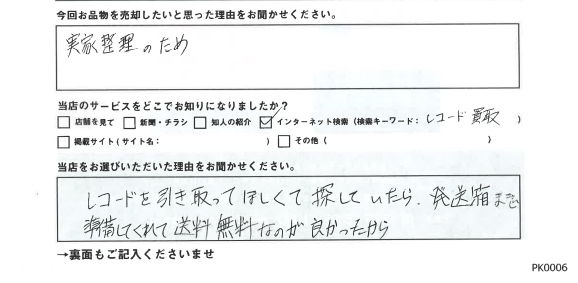 今回お品物を売却したいと思った理由をお聞かせください。
実家整理のため
当店のサービスをどこでお知りになりましたか？
□店舗を見て □新聞・チラシ □知人の紹介 ☑インターネット検索（検索キーワード：レコード買取 ）
□掲載サイト（サイト名： ） □その他（ ）
当店をお選びいただいた理由をお聞かせください。
レコードを引き取ってほしくて探していたら、発送箱まで
準備してくれて送料無料なのが良かったから
→裏面もご記入くださいませ
PK0006